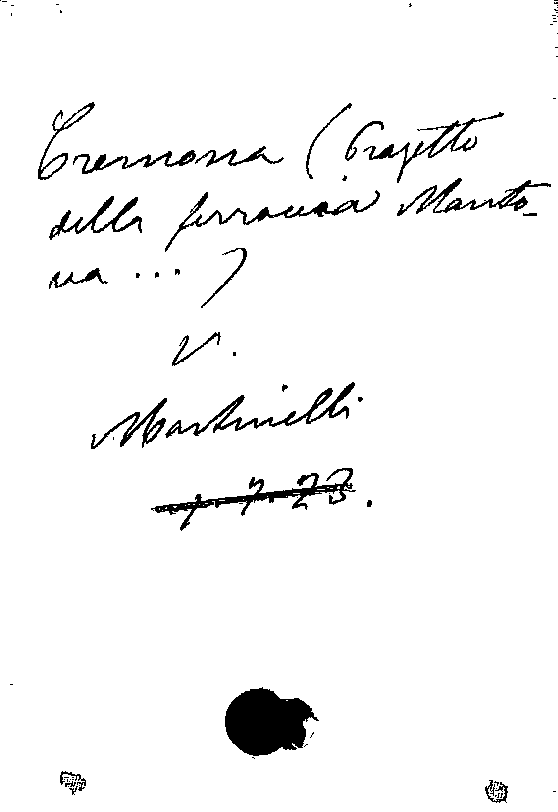 Cremona (Progetto
della ferrovia Manto-
va ... )
V.
Martinelli